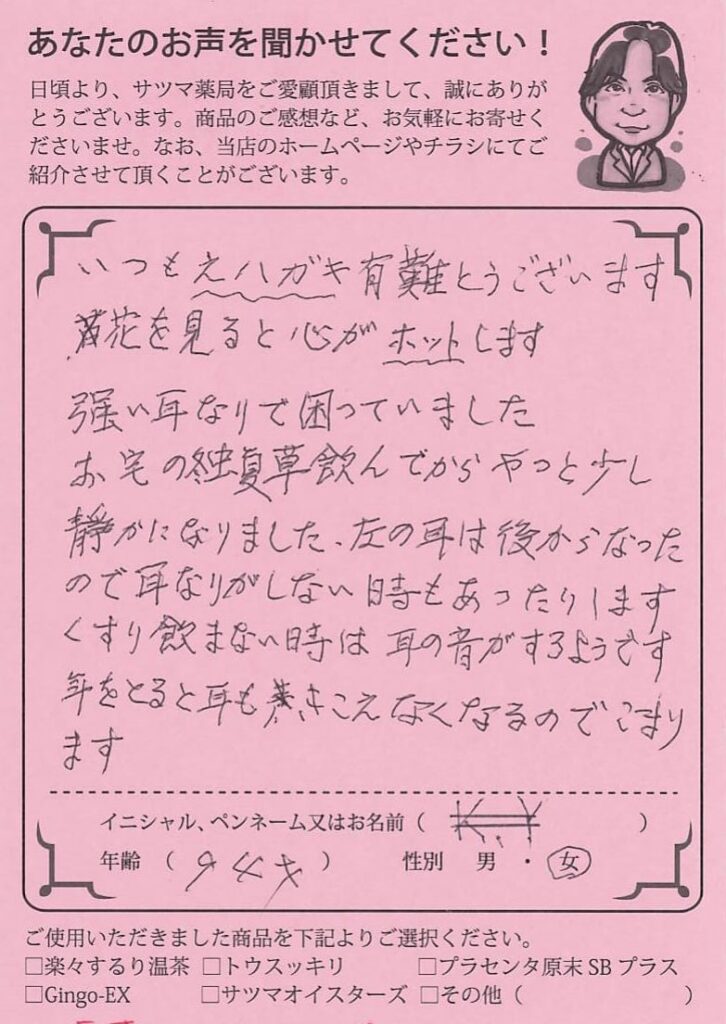 あなたのお声を聞かせてください！
日頃より、サツマ薬局をご愛顧頂きまして、誠にありが
とうございます。商品のご感想など、お気軽にお寄せく
ださいませ。なお、当店のホームページやチラシにてご
紹介させて頂くことがございます。
いつもえハガキ有難とうございます
花を見ると心がホットします
強い耳なりで困っていました
お宅の 草飲んでからやっと少し
静かになりました、左の耳は後からなった
ので耳なりがしない時もあったりします
くすり飲まない時は耳の音がするようです
年をとると耳もきこえなくなるのでこまり
ます
イニシャル、ペンネーム又はお名前（ K.Y ）
年齢（ 94才 ） 性別 男 ・ 女
ご使用いただきました商品を下記よりご選択ください。
□楽々するり温茶 □トウスッキリ □プラセンタ原末SBプラス
□Gingo-EX □サツマオイスターズ □その他（ ）